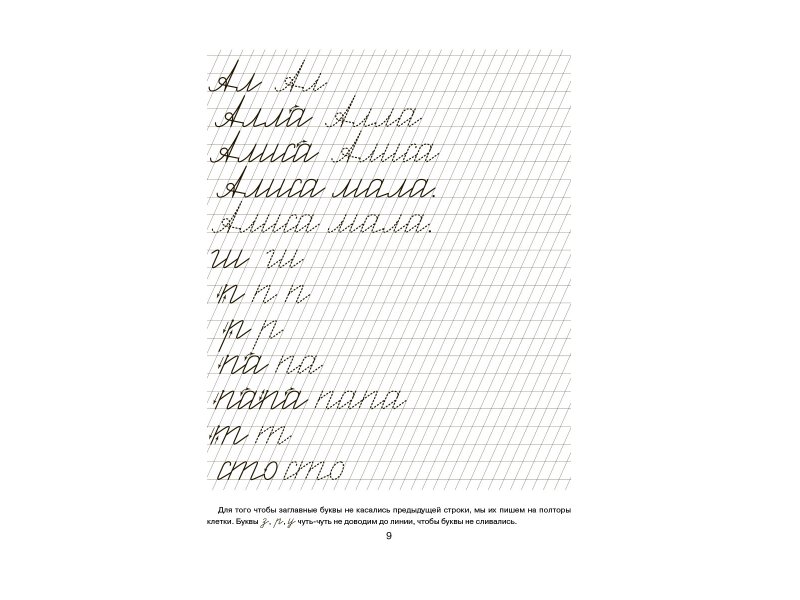 Ал Ал
Алла Алла
Алиса Алиса
Алиса мала.
Алиса мала.
ш ш
п п п
р р
па па
папа папа
т т
сто сто
Для того чтобы заглавные буквы не касались предыдущей строки, мы их пишем на полторы
клетки. Буквы з, р, у чуть-чуть не доводим до линии, чтобы буквы не сливались.
9